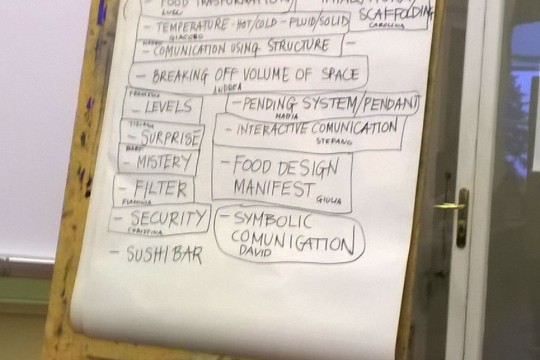 - FOOD TRASFORMATION/
LUCI
SCAFFOLDING
CAROLINA
- TEMPERATURE - HOT/COLD - FLUID/SOLID
GIACOMO
- COMUNICATION USING STRUCTURE -
- BREAKING OFF VOLUME OF SPACE
ANDREA
- LEVELS
- PENDING SYSTEM/PENDANT
NADIA
- SURPRISE
- INTERACTIVE COMUNICATION
STEFANO
- MISTERY
- FOOD DESIGN
MANIFEST
GIULIA
- FILTER
- SECURITY
CHRISTINA
- SYMBOLIC
COMUNICATION
DAVID
- SUSHI BAR